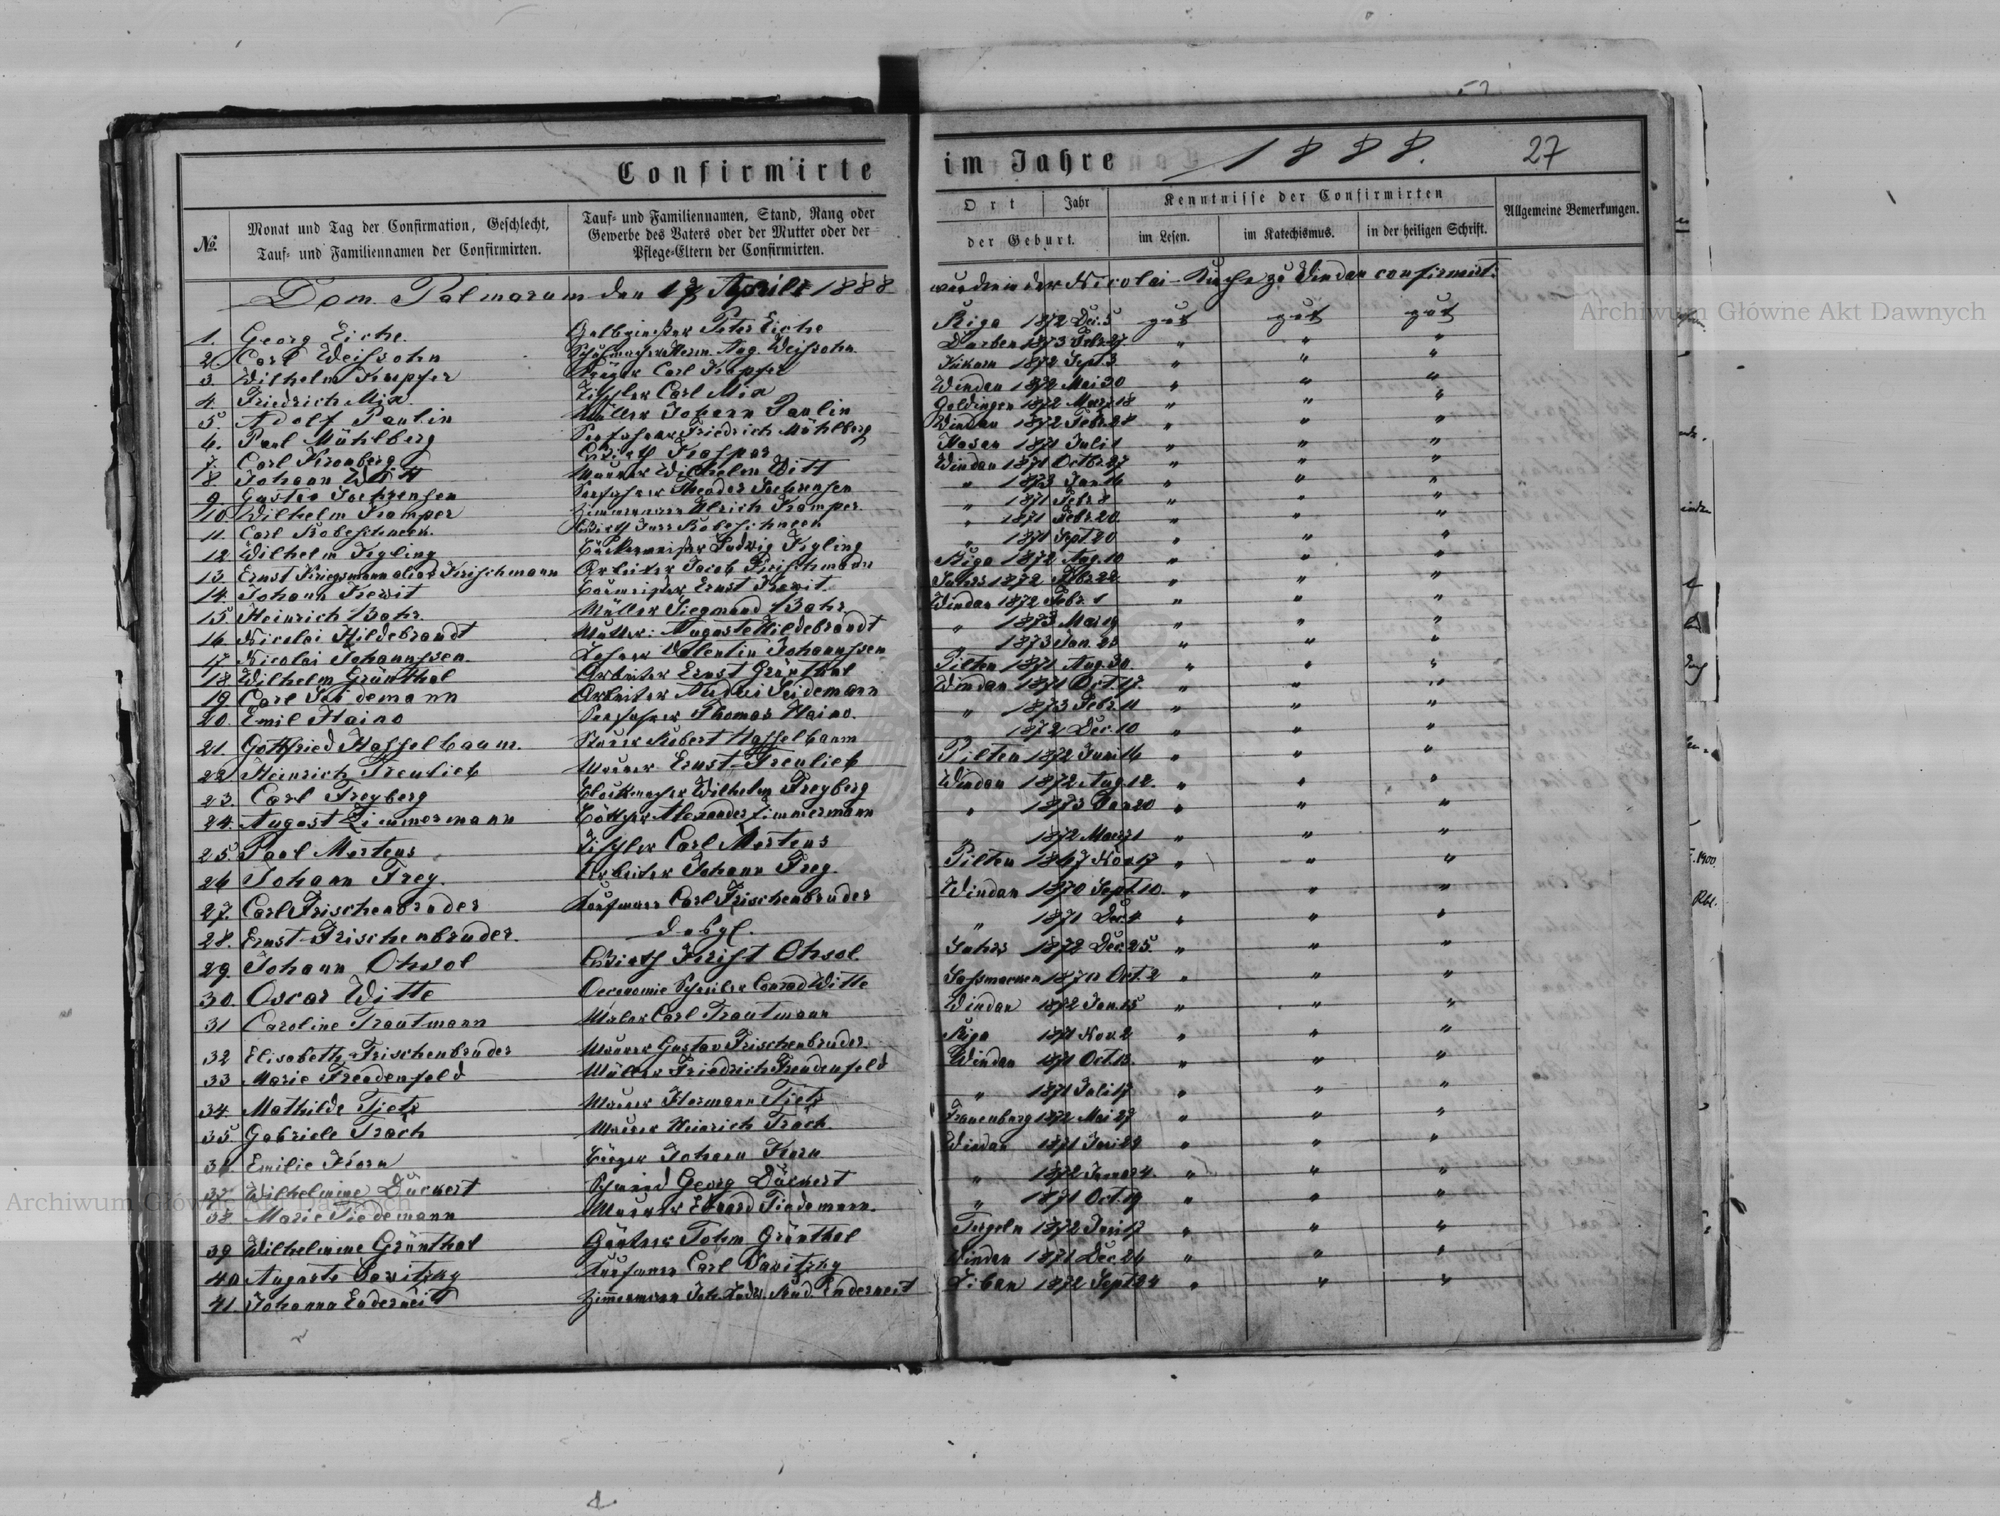 Confirmirte im Jahre 1888. 27
No. Monat und Tag der Confirmation, Geschlecht, Tauf- und Familiennamen der Confirmirten.
Tauf- und Familiennamen, Stand, Rang oder Gewerbe des Vaters oder der Mutter oder der Pflege-Eltern der Confirmirten.
Ort Jahr der Geburt.
Kenntnisse der Confirmirten
im Lesen. im Katechismus. in der heiligen Schrift.
Allgemeine Bemerkungen.
Dom. Palmarum den Aprill 1888 wurden in der Nicolai-Kirche zu Windau confirmirt.
1. Georg Eiche. Gelbgiesser Peter Eiche Riga 1872 Dec. 5 gut gut gut
2. Carl Weissohn Aug. Weissohn Durben 1873 Febr. 27 " " "
3. Wilhelm Kupfer Carl Kupfer 1872 Sept. 3 " " "
4. Friedrich Mia. Tischler Carl Mia Windau 1872 Mai 30 " " "
5. Adolf Paulin Müller Johann Paulin Goldingen 1872 Maerz 18 " " "
6. Paul Mühlberg Seefahrer Friedrich Mühlberg Windau 1872 Febr. 21 " " "
7. Carl Kronberg Wirth Kaspar 1871 Juli 1 " " "
8. Johann Witt Maurer Wilhelm Witt Windau 1871 Octbr. 27 " " "
9. Gustav Jochensen Seefahrer Theodor Jochensen " 1873 Jan. 16 " " "
10. Wilhelm Kamper Zimmermann Ulrich Kamper " 1871 Febr. 8 " " "
11. Carl Wirth " 1871 Febr. 20. " " "
12. Wilhelm Figling Bäckermeister Ludwig Figling " 1871 Sept. 20 " " "
13. Ernst Kriegsmann alias Krischmann Arbeiter Jacob Krischmann Riga 1872 Aug. 10 " " "
14. Johann Ernst 1872 Febr. 22. " " "
15. Heinrich Bahr. Müller Siegmund Bahr Windau 1872 Febr. 1 " " "
16. Nicolai Hildebrandt Mutter: Auguste Hildebrandt " 1873 Mai 19 " " "
17. Nicolai Johannssen. Valentin Johannssen 1873 Jan. 28 " " "
18. Wilhelm Grünthal Arbeiter Ernst Grünthal Pilten 1871 Aug. 30. " " "
19. Carl Seidemann Arbeiter Seidemann Windau 1871 Oct. 17. " " "
20. Emil Haino Seefahrer Thomas Haino. " 1873 Febr. 11 " " "
21. Gottfried Hasselbaum. Hasselbaum 1872 Dec. 10 " " "
22. Heinrich Treulieb Maurer Ernst Treulieb Pilten 1872 Juni 16 " " "
23. Carl Freyberg Wilhelm Freyberg Windau 1872 Aug. 12. " " "
24. August Zimmermann Böttcher Alexander Zimmermann " 1873 Jan 20 " " "
25. Paul Mertens Tischler Carl Mertens " 1872 Maerz 1 " " "
26. Johann Frey. Arbeiter Johann Frey. Pilten 1867 Nov. 17 " " "
27. Carl Frischenbruder Kaufmann Carl Frischenbruder Windau 1870 Sept. 10. " " "
28. Ernst Frischenbruder. desgl. " 1871 Dec. 4 " " "
29. Johann Ohsol Wirth Krist Ohsol 1872 Dec. 25. " " "
30. Oscar Witte Oeconomie Schreiber Conrad Witte Sassmacken Oct. 2 " " "
31. Caroline Trautmann Maler Carl Trautmann Windau 1872 Jan. 15 " " "
32. Elisabeth Frischenbruder Maurer Gustav Frischenbruder. Riga 1871 Nov. 2 " " "
33. Marie Freudenfeld Müller Friedrich Freudenfeld Windau 1871 Oct. 13. " " "
34. Mathilde Tietz Maurer Hermann Tietz " 1871 Juli 17 " " "
35. Gabriele Trach Maurer Heinrich Trach. Frauenburg 1872 Mai 27 " " "
36. Emilie Korn Johann Korn Windau 1871 Juni 22 " " "
37. Wilhelmine Dückert Schmied Georg Dückert " 1872 Januar 4. " " "
38. Marie Tiedemann Maurer Eduard Tiedemann. " 1871 Oct. 19 " " "
39. Wilhelmine Grünthal Gärtner Johm Grünthal 1872 Juni 17 " " "
40. Auguste Sawitzky Kaufmann Carl Sawitzky Windau 1871 Dec. 26 " " "
41. Johanna Enderneit Zimmermann Joh. Ludw. Enderneit Libau 1872 Sept. 24 " " "
Archiwum Główne Akt Dawnych
Archiwum Główne Akt Dawnych